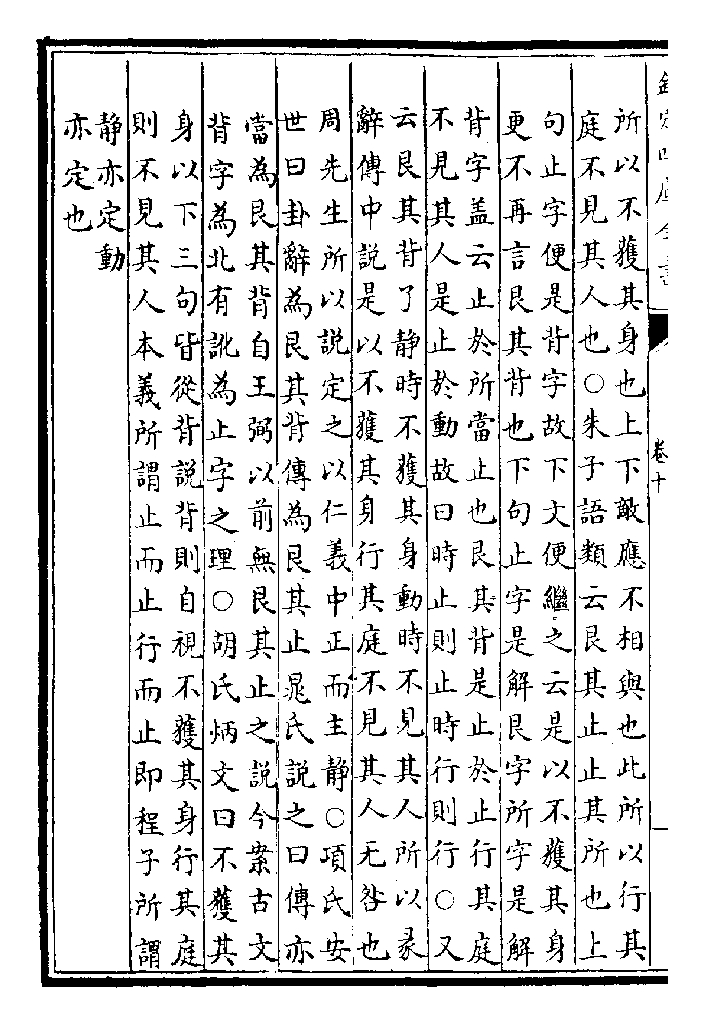 欽定四庫全書
卷十
所以不獲其身也上下敵應不相與也此所以行其
庭不見其人也○朱子語類云艮其止止其所也上
句止字便是背字故下文便繼之云是以不獲其身
更不再言艮其背也下句止字是解艮字所字是解
背字盖云止於所當止也艮其背是止於止行其庭
不見其人是止於動故曰時止則止時行則行○又
云艮其背了静時不獲其身動時不見其人所以彖
辭傳中說是以不獲其身行其庭不見其人无咎也
周先生所以說定之以仁義中正而主静○項氏安
世曰卦辭為艮其背傳為艮其止晁氏說之曰傳亦
當為艮其背自王弼以前無艮其止之說今案古文
背字為北有訛為止字之理○胡氏炳文曰不獲其
身以下三句皆從背說背則自視不獲其身行其庭
則不見其人本義所謂止而止行而止即程子所謂
静亦定動
亦定也